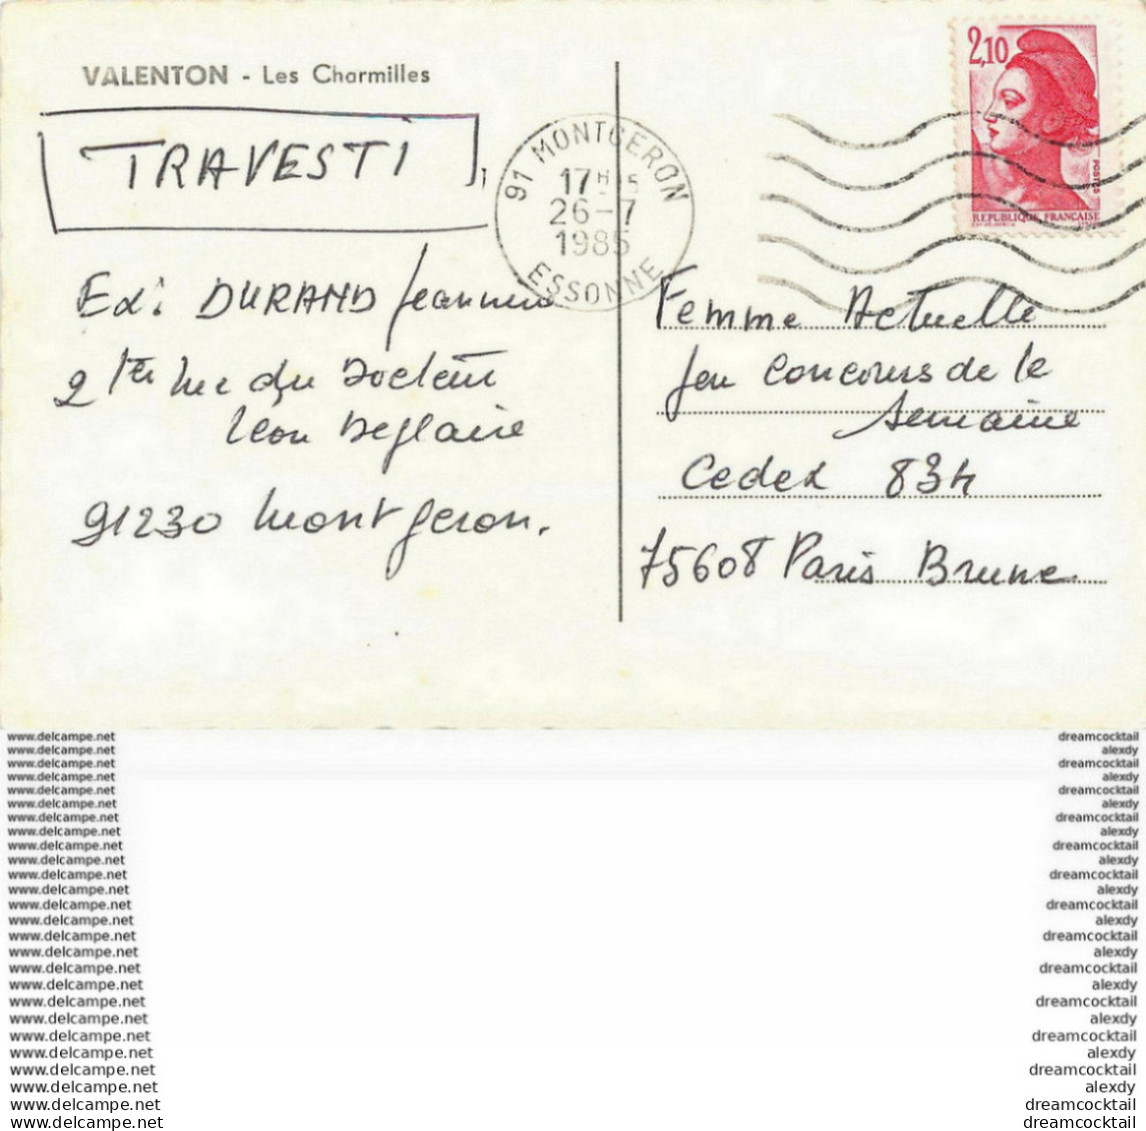 VALENTON - Les Charmilles
TRAVESTI
Ex: DURAND Jeannine
2 ter rue du Docteur
Léon Deglaire
91230 Montgeron.
91 MONTGERON
17H
26-7
1985
ESSONNE
2,10
POSTES
REPUBLIQUE FRANÇAISE
Femme Actuelle
Jeu Concours de la
Semaine
Cedex 834
75608 Paris Brune
www.delcampe.net
www.delcampe.net
www.delcampe.net
www.delcampe.net
www.delcampe.net
www.delcampe.net
www.delcampe.net
www.delcampe.net
www.delcampe.net
www.delcampe.net
www.delcampe.net
www.delcampe.net
www.delcampe.net
www.delcampe.net
www.delcampe.net
www.delcampe.net
www.delcampe.net
www.delcampe.net
www.delcampe.net
www.delcampe.net
www.delcampe.net
www.delcampe.net
www.delcampe.net
www.delcampe.net
www.delcampe.net
www.delcampe.net
dreamcocktail
alexdy
dreamcocktail
alexdy
dreamcocktail
alexdy
dreamcocktail
alexdy
dreamcocktail
alexdy
dreamcocktail
alexdy
dreamcocktail
alexdy
dreamcocktail
alexdy
dreamcocktail
alexdy
dreamcocktail
alexdy
dreamcocktail
alexdy
dreamcocktail
alexdy
dreamcocktail
dreamcocktail